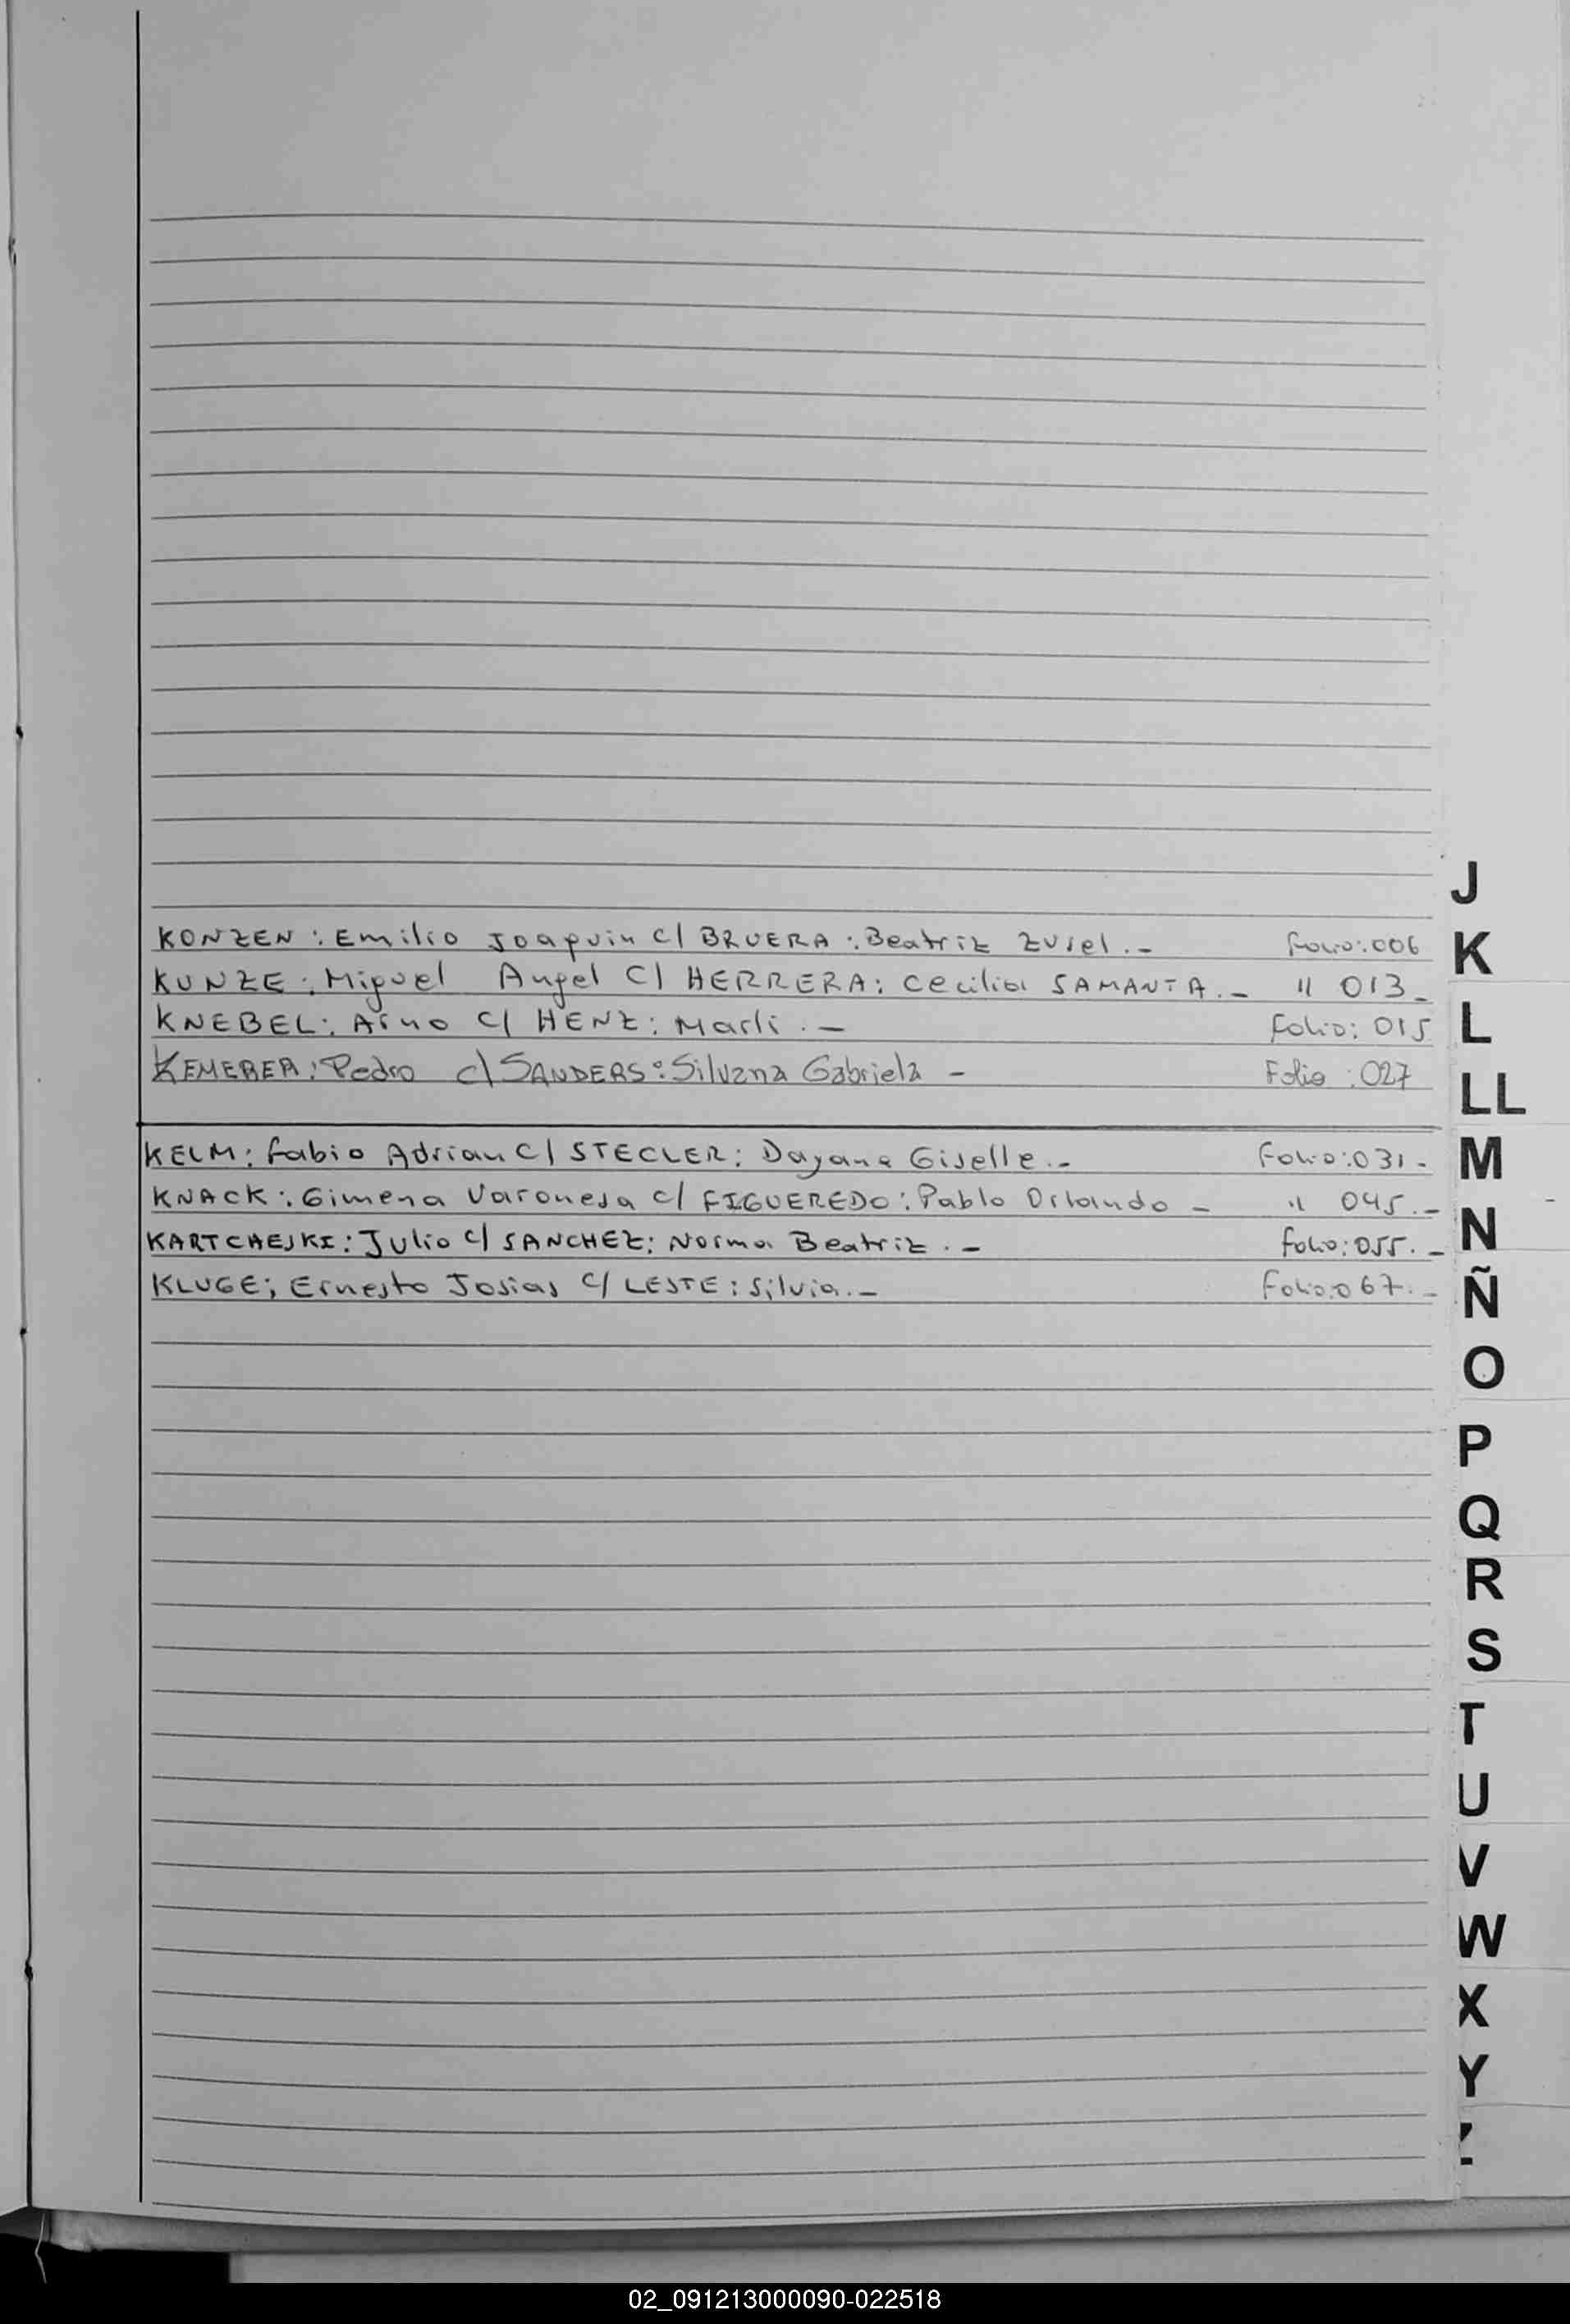 KONZEN: Emilio Joaquin C/ BRUERA: Beatriz Zusel.- Folio: 006
KUNZE: Miguel Angel C/ HERRERA: Cecilia SAMANTA.- " 013-
KNEBEL: Arno C/ HENZ: Marli.- Folio: 015
KEMERER: Pedro C/ SANDERS: Silvana Gabriela - Folio: 027
KELM: Fabio Adrian C/ STECLER: Dayana Giselle.- Folio: 031-
KNACK: Gimena Varonesa C/ FIGUEREDO: Pablo Orlando - " 045.-
KARTCHESKI: Julio C/ SANCHEZ: Norma Beatriz.- Folio: 055.-
KLUGE; Ernesto Josias C/ LESTE: Silvia.- Folio: 067.-
J
K
L
LL
M
N
Ñ
O
P
Q
R
S
T
U
V
W
X
Y
Z
02_091213000090-022518